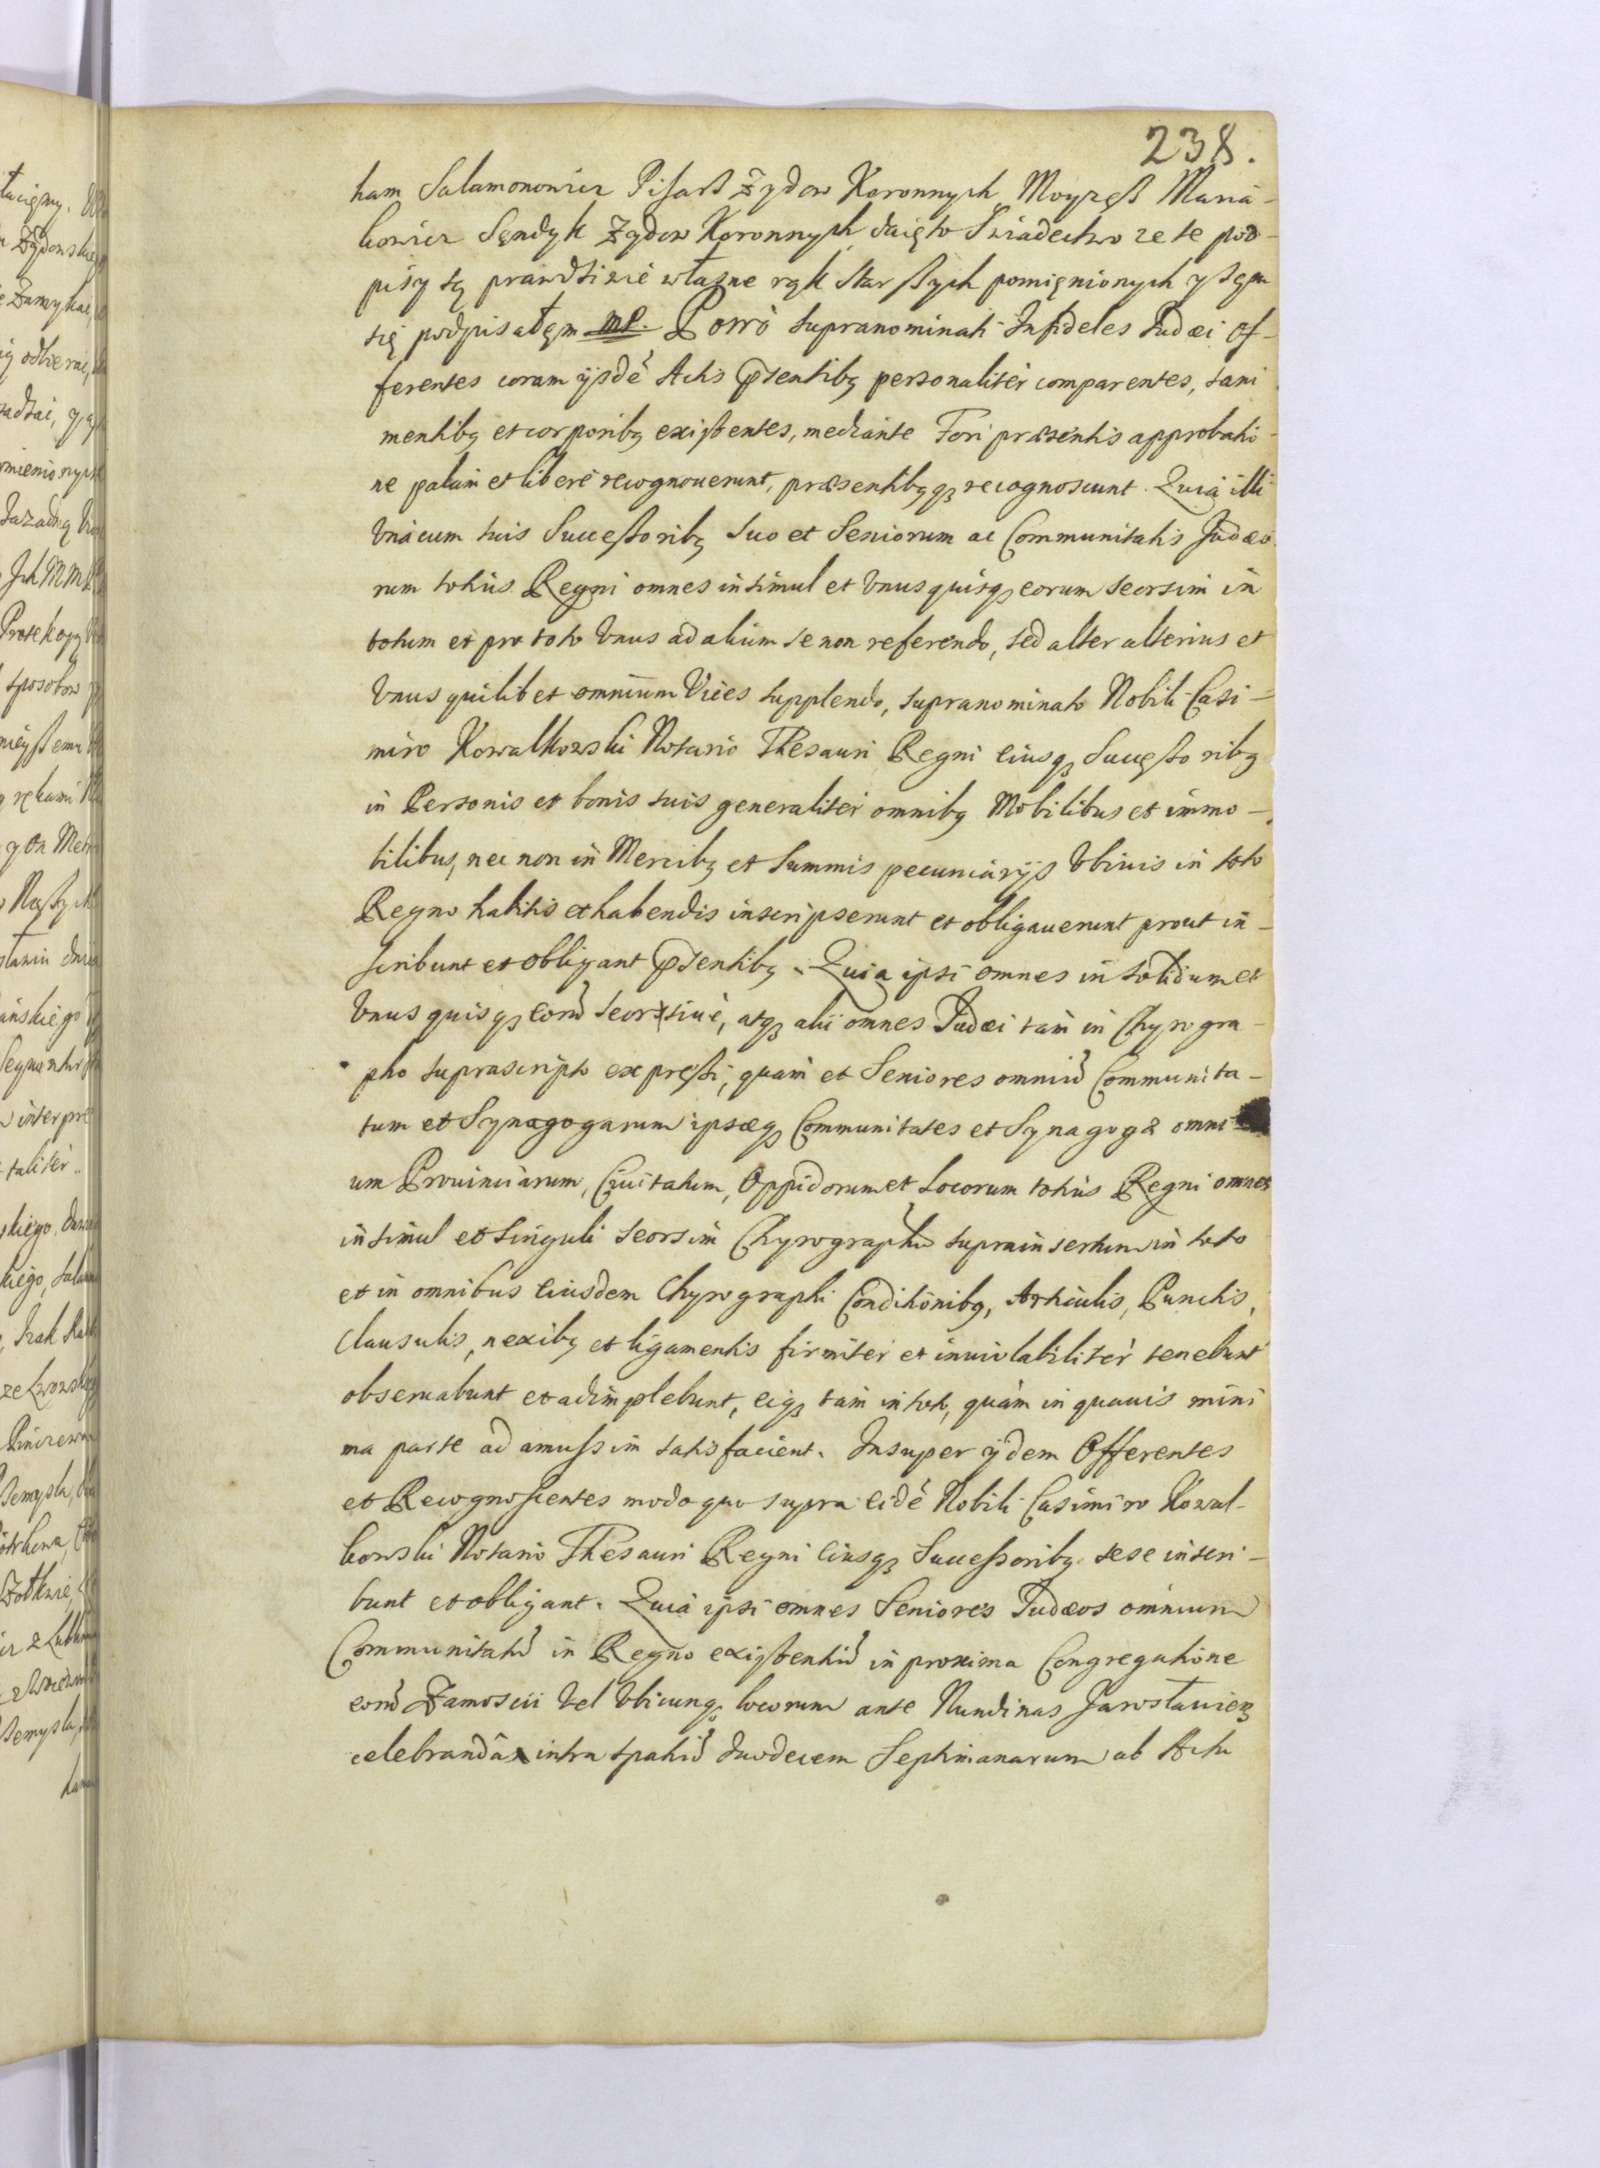 238.
ham Salamonowicz Pisarß Zydow Koronnych, Moyzeß Maria-
kowicz Sęndyk Zydow Koronnych daię to Swiadectwo ze te pod-
pisy są prawdziwie własne rąk Starßych pomięnionych y sęm
się podpisałęm mp. Porrò supranominati Infideles Judæi of-
ferentes coram ijsdē Actis p̄sentibꝫ personaliter comparentes, sani
mentibꝫ et corporibꝫ existentes, mediante Fori præsentis approbatio-
ne palam et liberè recognouerunt, præsentibꝫqꝫ recognoscunt. Quia illi
vnà cum suis Successoribꝫ suo et Seniorum ac Communitatis Judæo-
rum totius Regni omnes insimul et vnus quisqꝫ eorum seorsim in
totum et pro toto vnus ad alium se non referendo, sed alter alterius et
vnus quilibet omnium Vices supplendo, supranominato Nobili Casi-
miro Kowalkowski Notario Thesauri Regni eiusqꝫ Successoribꝫ
in Personis et bonis suis generaliter omnibꝫ Mobilibus et immo-
bilibus, nec non in Mercibꝫ et Summis pecuniarijs vbiuis in toto
Regno habitis et habendis inscripserunt et obligauerunt prout in-
scribunt et obligant p̄sentibꝫ. Quia ipsi omnes in solidum et
vnus quisqꝫ eorū seorsiuè, atqꝫ alii omnes Judæi tam in Chyrogra-
pho suprascripto expressi, quam et Seniores omniū Communita-
tum et Synagogarum ipsæqꝫ Communitates et Synagogæ omni-
um Prouinciarum, Ciuitatum, Oppidorum et Locorum totius Regni omnes
insimul et singuli seorsim Chyrographū suprainsertum in toto
et in omnibus eiusdem Chyrographi Conditionibꝫ, Articulis, Punctis,
Clausulis, nexibꝫ et ligamentis firmiter et inuiolabiliter tenebunt
obseruabunt et adimplebunt, eiqꝫ tam in toto, quàm in quauis mini
ma parte ad amussim satisfacient. Insuper ijdem Offerentes
et Recognoscentes modo quo supra eidē Nobili Casimiro Kowal-
kowski Notario Thesauri Regni eiusqꝫ Successoribꝫ sese inscri-
bunt et obligant. Quia ipsi omnes Seniores Judæos omnium
Communitatū in Regno existentiū in proxima Congregatione
eorū Zamoscii vel vbicunqꝫ locorum ante Nundinas Jarosłauien
celebranda intra spatiū duodecem Septimanarum ab Actu